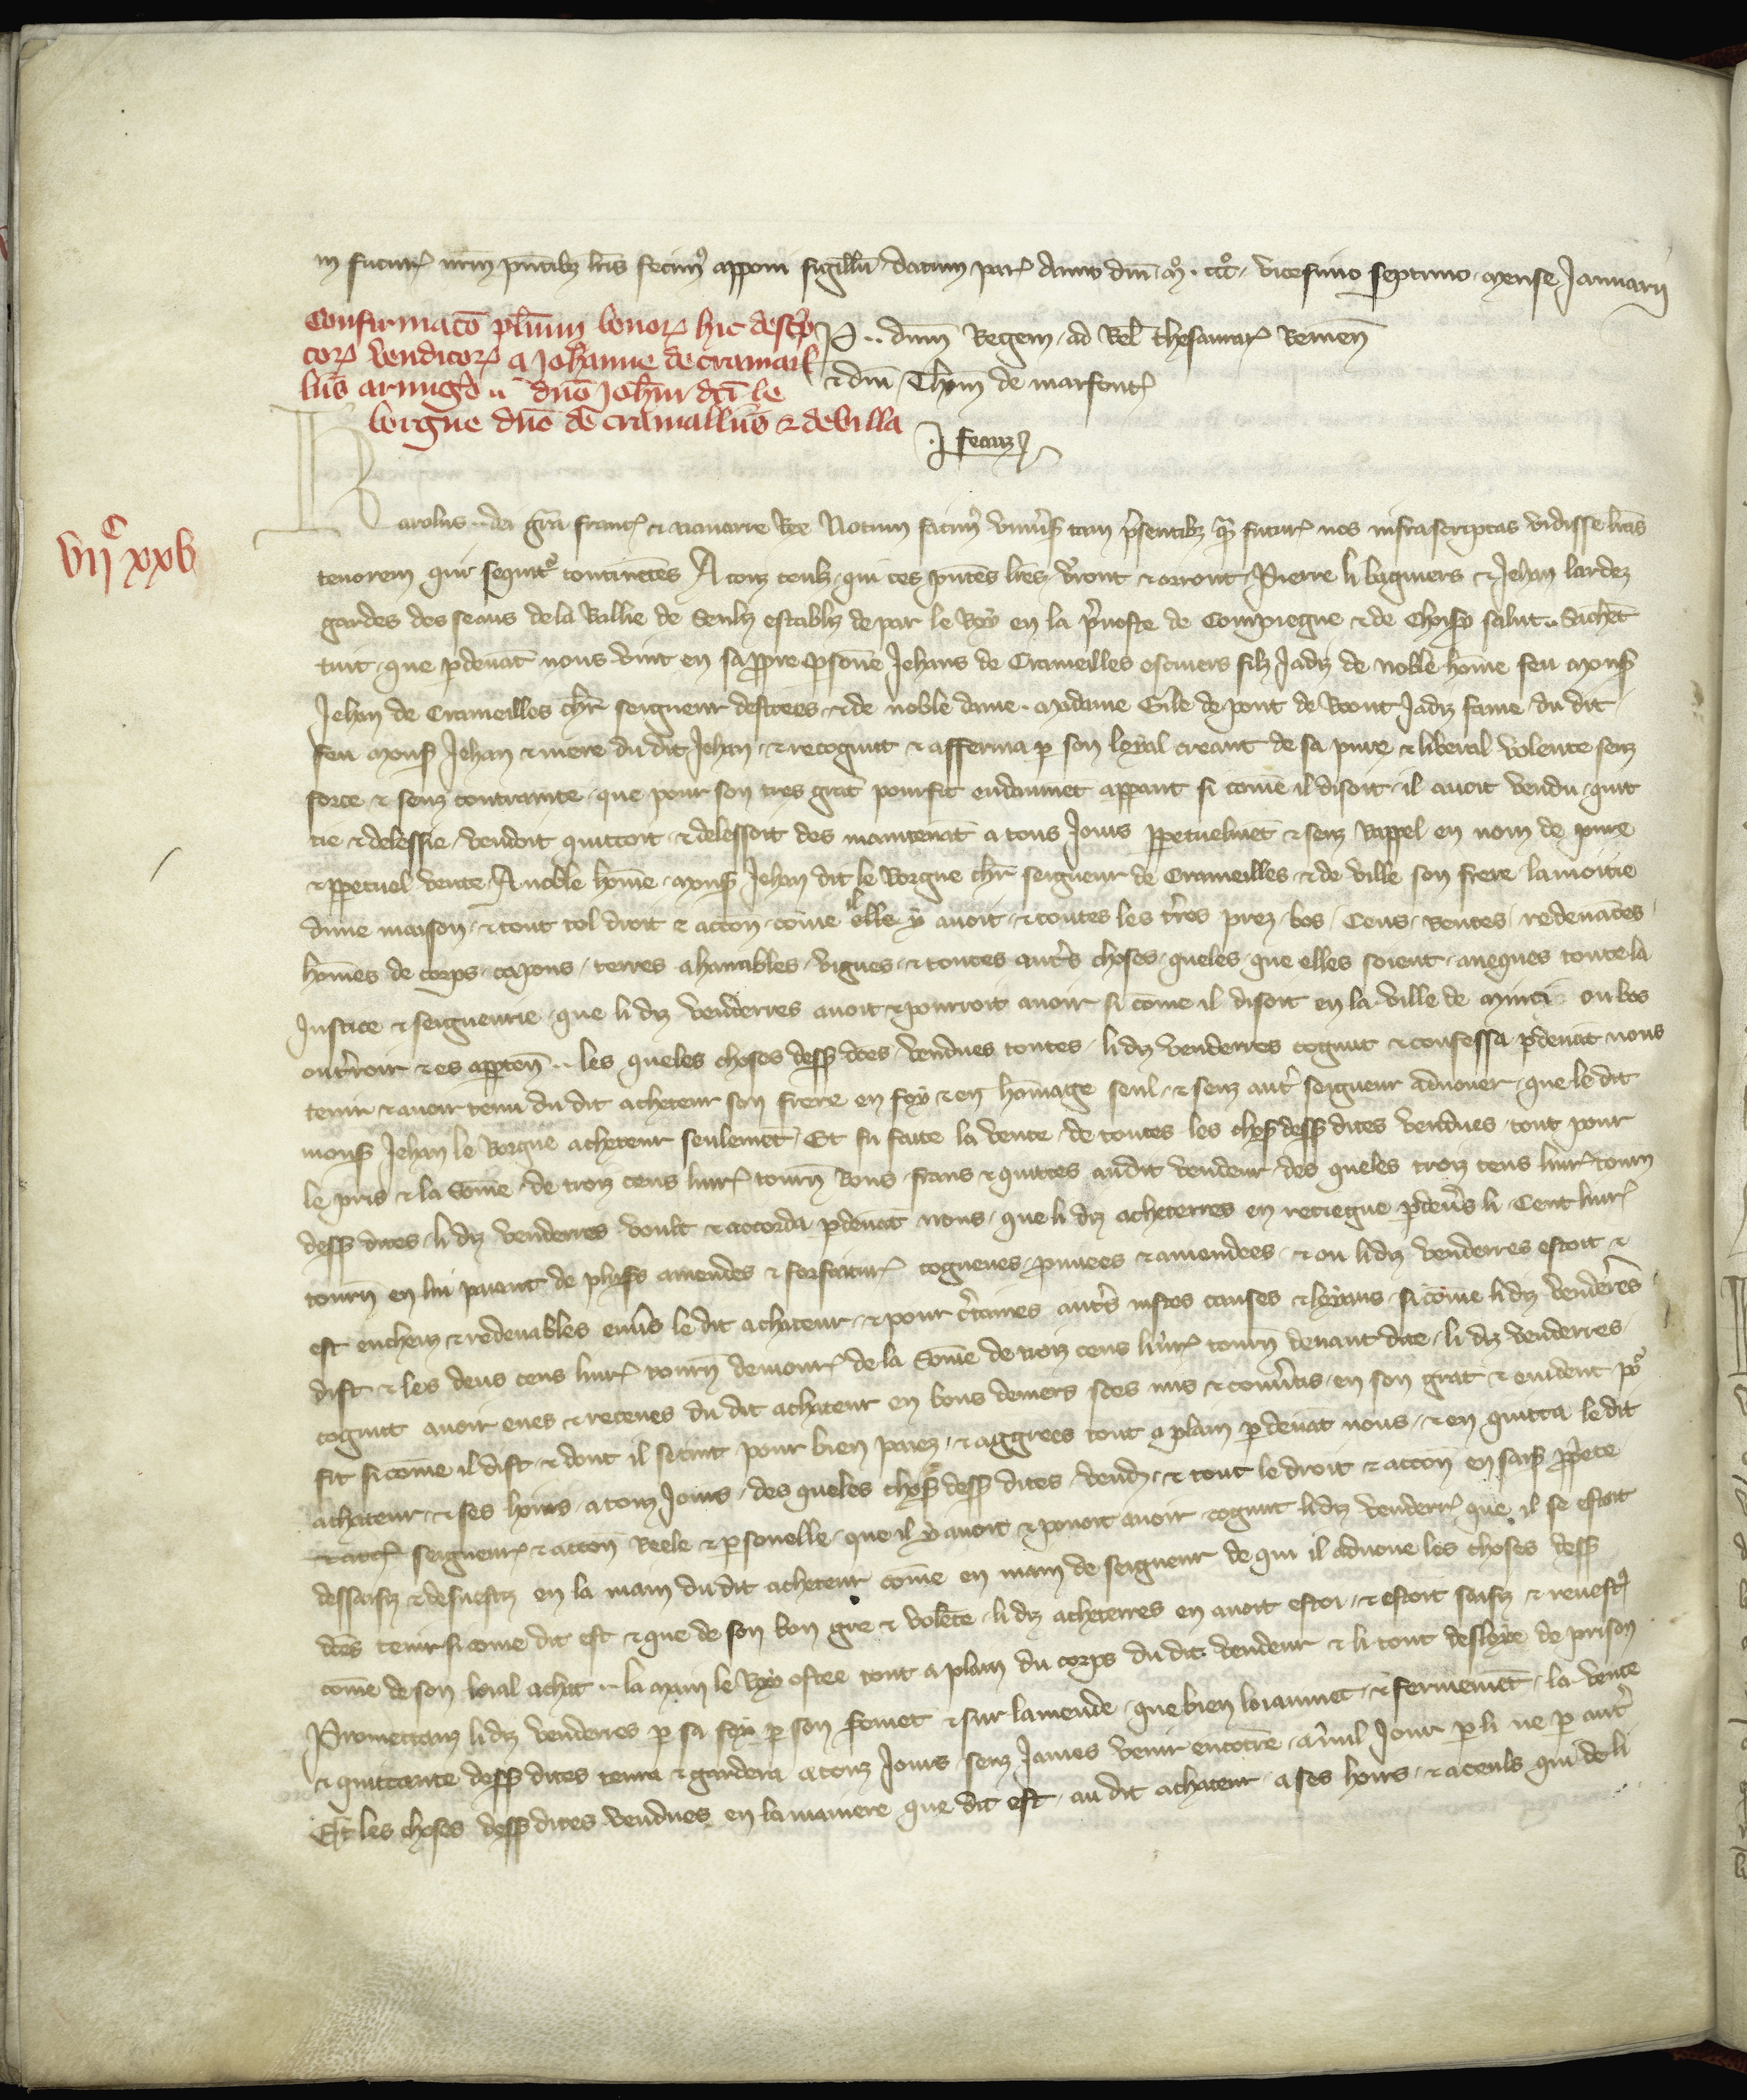 in futur nrm pntibz lris fecimꝰ apponi sigillu datum par Anno dni m̊ cccͦ vicesimo septimo mense Januarii
Confirmaco plurium bonoꝝ hic descp
toꝝ venditoꝝ a Johanne de cramail
liis armigo dno Johi dci le
borgne dno de cramalliis ⁊ de villa
P .. dnm Regem ad Rel thesaurar Remen
⁊ dni Thom de marfont
J fecitz
viiͨ xxv
Karolus dei gra franc ⁊ navarre Rex Notum facimꝰ univsis tam psentibz qm futur nos infrascriptas vidisse lras
tenorem qui sequitʳ continetes A touz ceulz qui ces pntes lres vront ⁊ orront Pierre li baguiers ⁊ Jehan lardez
gardes des seaus de la Ballie de Senliz establiz de par le Roy en la pvoste de Compiegne ⁊ de Choisy salut .. Sachet
tuit que pdevat nous vint en sa ppre psone Jehans de Crameilles escuiers filz Jadiz de noble home feu mons
Jehan de Crameilles chr seigneur des ⁊ de noble dame madame Gile de pont de Roont Jadiz fame du dit
feu mons Jehan ⁊ mere du dit Jehan ⁊ recognut ⁊ afferma p son loyal creant de sa pure ⁊ liberal volente senz
force ⁊ senz contrainte que pour son tres grat pourfit evidaumet appant si come il disoit il avoit vendu quit
tie ⁊ delessie vendoit quittoit ⁊ delessoit des maintenat a tous Jours ppetuelmet ⁊ senz Rappel en nom de pure
⁊ ppetuel vente A noble home mons Jehan dit le Borgne chr seigneur de Crameilles ⁊ de ville son frere la moitie
dune maison ⁊ tout tel droit ⁊ accon come il elle y avoit ⁊ toutes les tres prez bos Cens Rentes redevaces
homes de corps capons terres ahanables vignes ⁊ toutes autʳs choses queles que elles soient aveques toute la
Justice ⁊ seigneurie que li diz venderres avoit ⁊ pourroit avoir si come il disoit en la ville de minci ou bos
ou trroir ⁊ es apparten .. les queles choses dess dces vendues toutes li diz venderres cognut ⁊ confessa pdevat nous
tenir ⁊ avoir tenu du dit acheteur son frere en foy ⁊ en homage seul ⁊ senz autʳ seigneur advouer que le dit
mons Jehan le Borgne acheteur seulemet Et fu faite la vente de toutes les choses dess dites vendues tout pour
le pris ⁊ la Some de troiz cens livr tourn Bons frans ⁊ quittes audit vendeur des queles troiz cens livr tourn
dess dites li diz venderres voult ⁊ accorda pdevat nous que li diz acheterres en retiegne pdevs li Cent livr
tourn en lui paiant de plusrs amendes ⁊ forfaitur cogneues prouvees ⁊ amendees ⁊ ou li diz venderres estoit ⁊
est encheuz ⁊ redevables envs le dit achateur ⁊ pour ctaines autʳs iustes causes ⁊ loyaus si come li diz venderres
dist ⁊ les deus cens livr tourn demour de la Some de troiz cens livr tourn devant dite li diz venderres
cognut avoir eues ⁊ receues du dit achateur en bons deniers ses nus ⁊ convtis en son grat ⁊ evident poʳ
fit si come il dist ⁊ dont il se tint pour bien paiez ⁊ aggrees tout a plain pdevat nous ⁊ en quitta le dit
achateur ⁊ ses hoirs a touz Jours des queles choses dess dites vend ⁊ tout le droit ⁊ accon en sais ppriete
seigneur ⁊ accon Reele ⁊ psonelle que il y avoit ⁊ pouoit avoir cognut li diz venderr que il se estoit
dessaisiz ⁊ desvestiz en la main du dit acheteur come en main de seigneur de qui il advoue les choses dess
dces tenir si come dit est ⁊ que de son bon gre ⁊ volete li diz acheterres en avoit estoi ⁊ estoit saisiz ⁊ revestꝯ
come de son loial achat .. la main le Roy ostee tout a plain du corps du dit vendeur ⁊ li tout desloye de prison
Promettanz li diz venderres p sa foy p son smet ⁊ sur lamende que bien loiaumet ⁊ fermemet la vente
⁊ quittance dess dites tenra ⁊ gardera a touz Jours senz James venir encotre a nul Jour p li ne p autʳ
Et les choses dess dites vendues en la maniere que dit est au dit achateur a ses hoirs ⁊ a ceuls qui de li